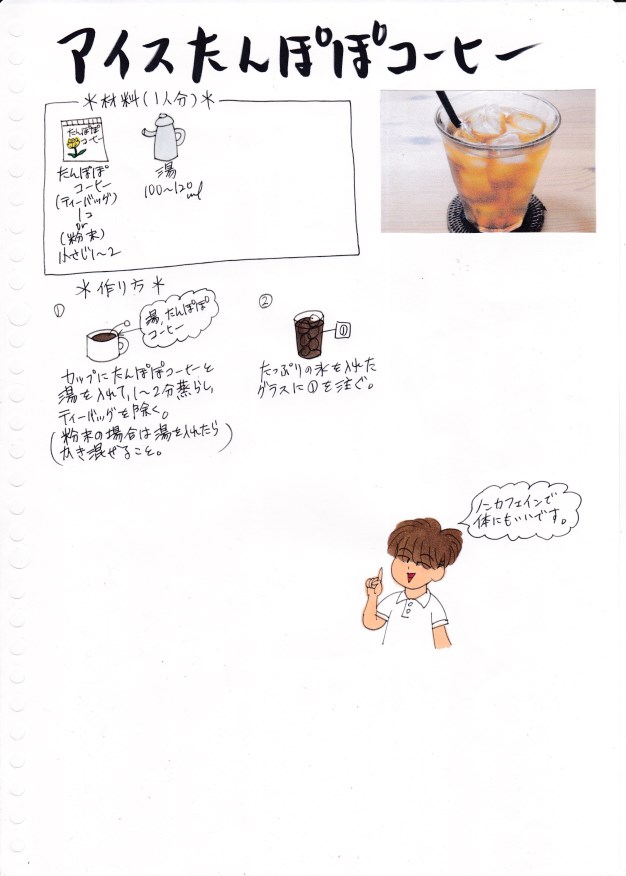 アイスたんぽぽコーヒー
＊材料(1人分)＊
たんぽぽ
コーヒー
たんぽぽ
コーヒー
(ティーバッグ)
1コ
or
(粉末)
小さじ1〜2
湯
100〜120
ml
＊作り方＊
①
湯、たんぽぽ
コーヒー
カップにたんぽぽコーヒーと
湯を入れて、1〜2分蒸らし、
ティーバッグを除く。
(粉末の場合は湯を入れたら
かき混ぜること。)
②
①
たっぷりの氷を入れた
グラスに①を注ぐ。
ノンカフェインで
体にもいいです。